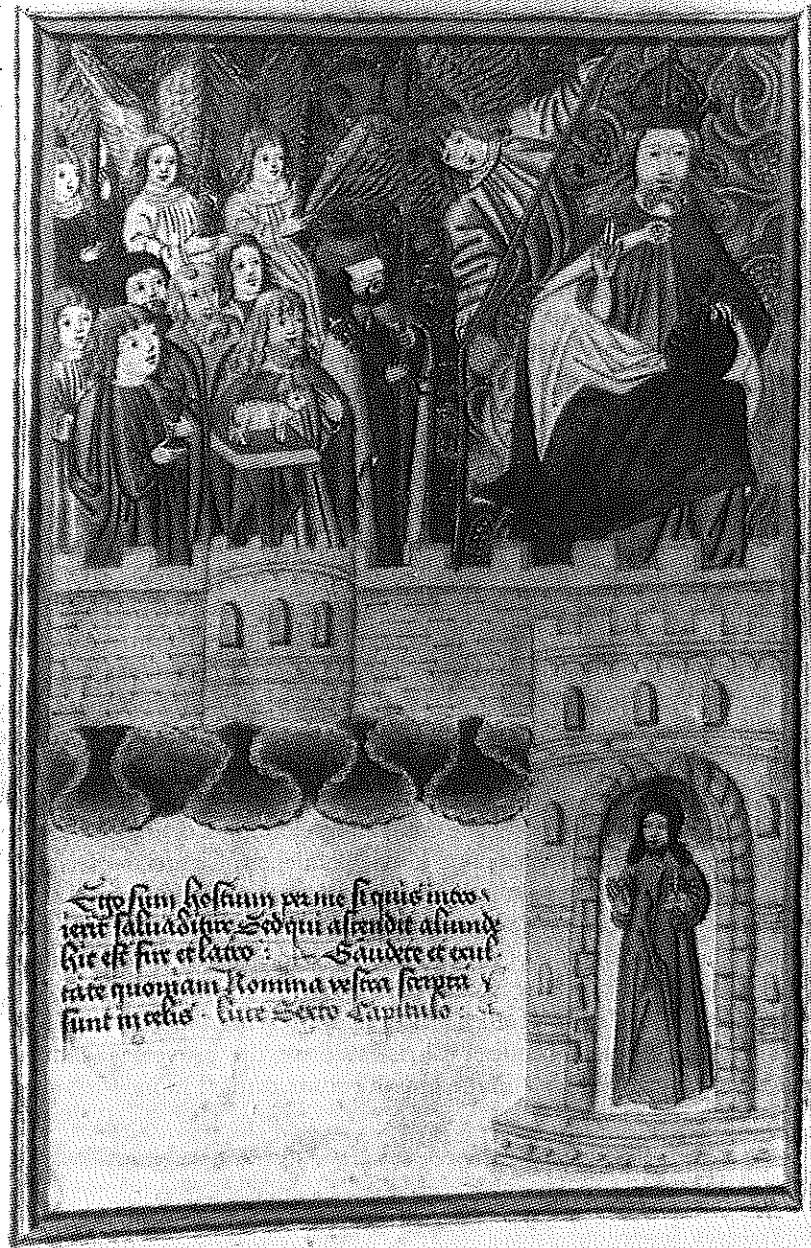 Ego sum hostium per me si quis intro
ierit saluabitur Sed qui ascendit aliunde
hic est fur et latro : Gaudete et exul
tate quoniam Nomina vestra scripta
sunt in celis · luce Sexto Capitulo :